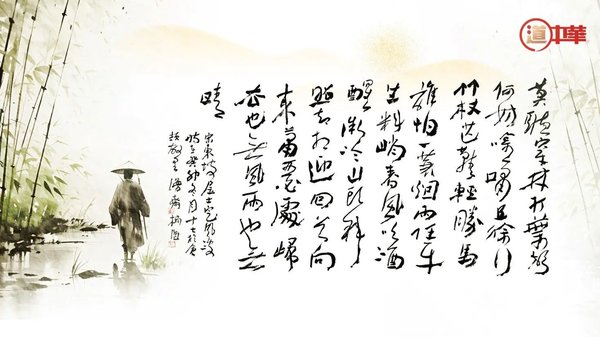 道中華
莫聽穿林打葉聲
何妨吟嘯且徐行
竹杖芒鞋輕勝馬
誰怕一蓑烟雨任平
生料峭春風吹酒
醒微冷山頭斜
照却相迎回首向
來蕭瑟處歸
去也無風雨也無
晴
宋東坡居士定風波
癸卯冬月十七於